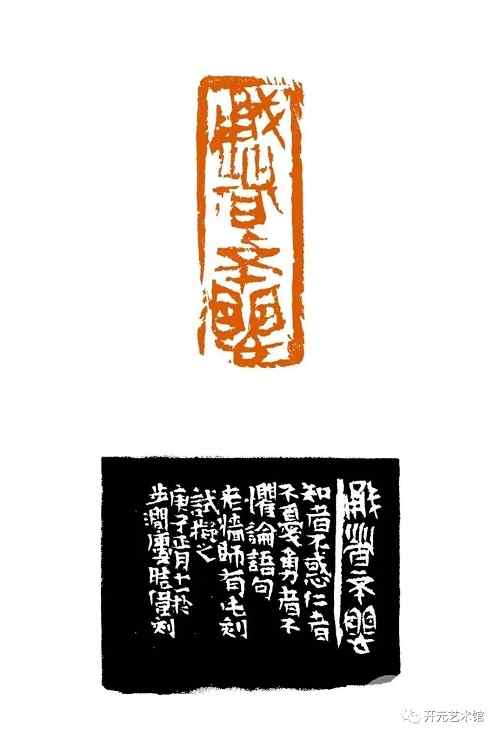 勇者不懼
勇者不懼
知者不惑仁者
不憂勇者不
懼論語句
老牆師有此刻
試擬之
庚子正月十一於
步澗廬刻
开元艺术馆